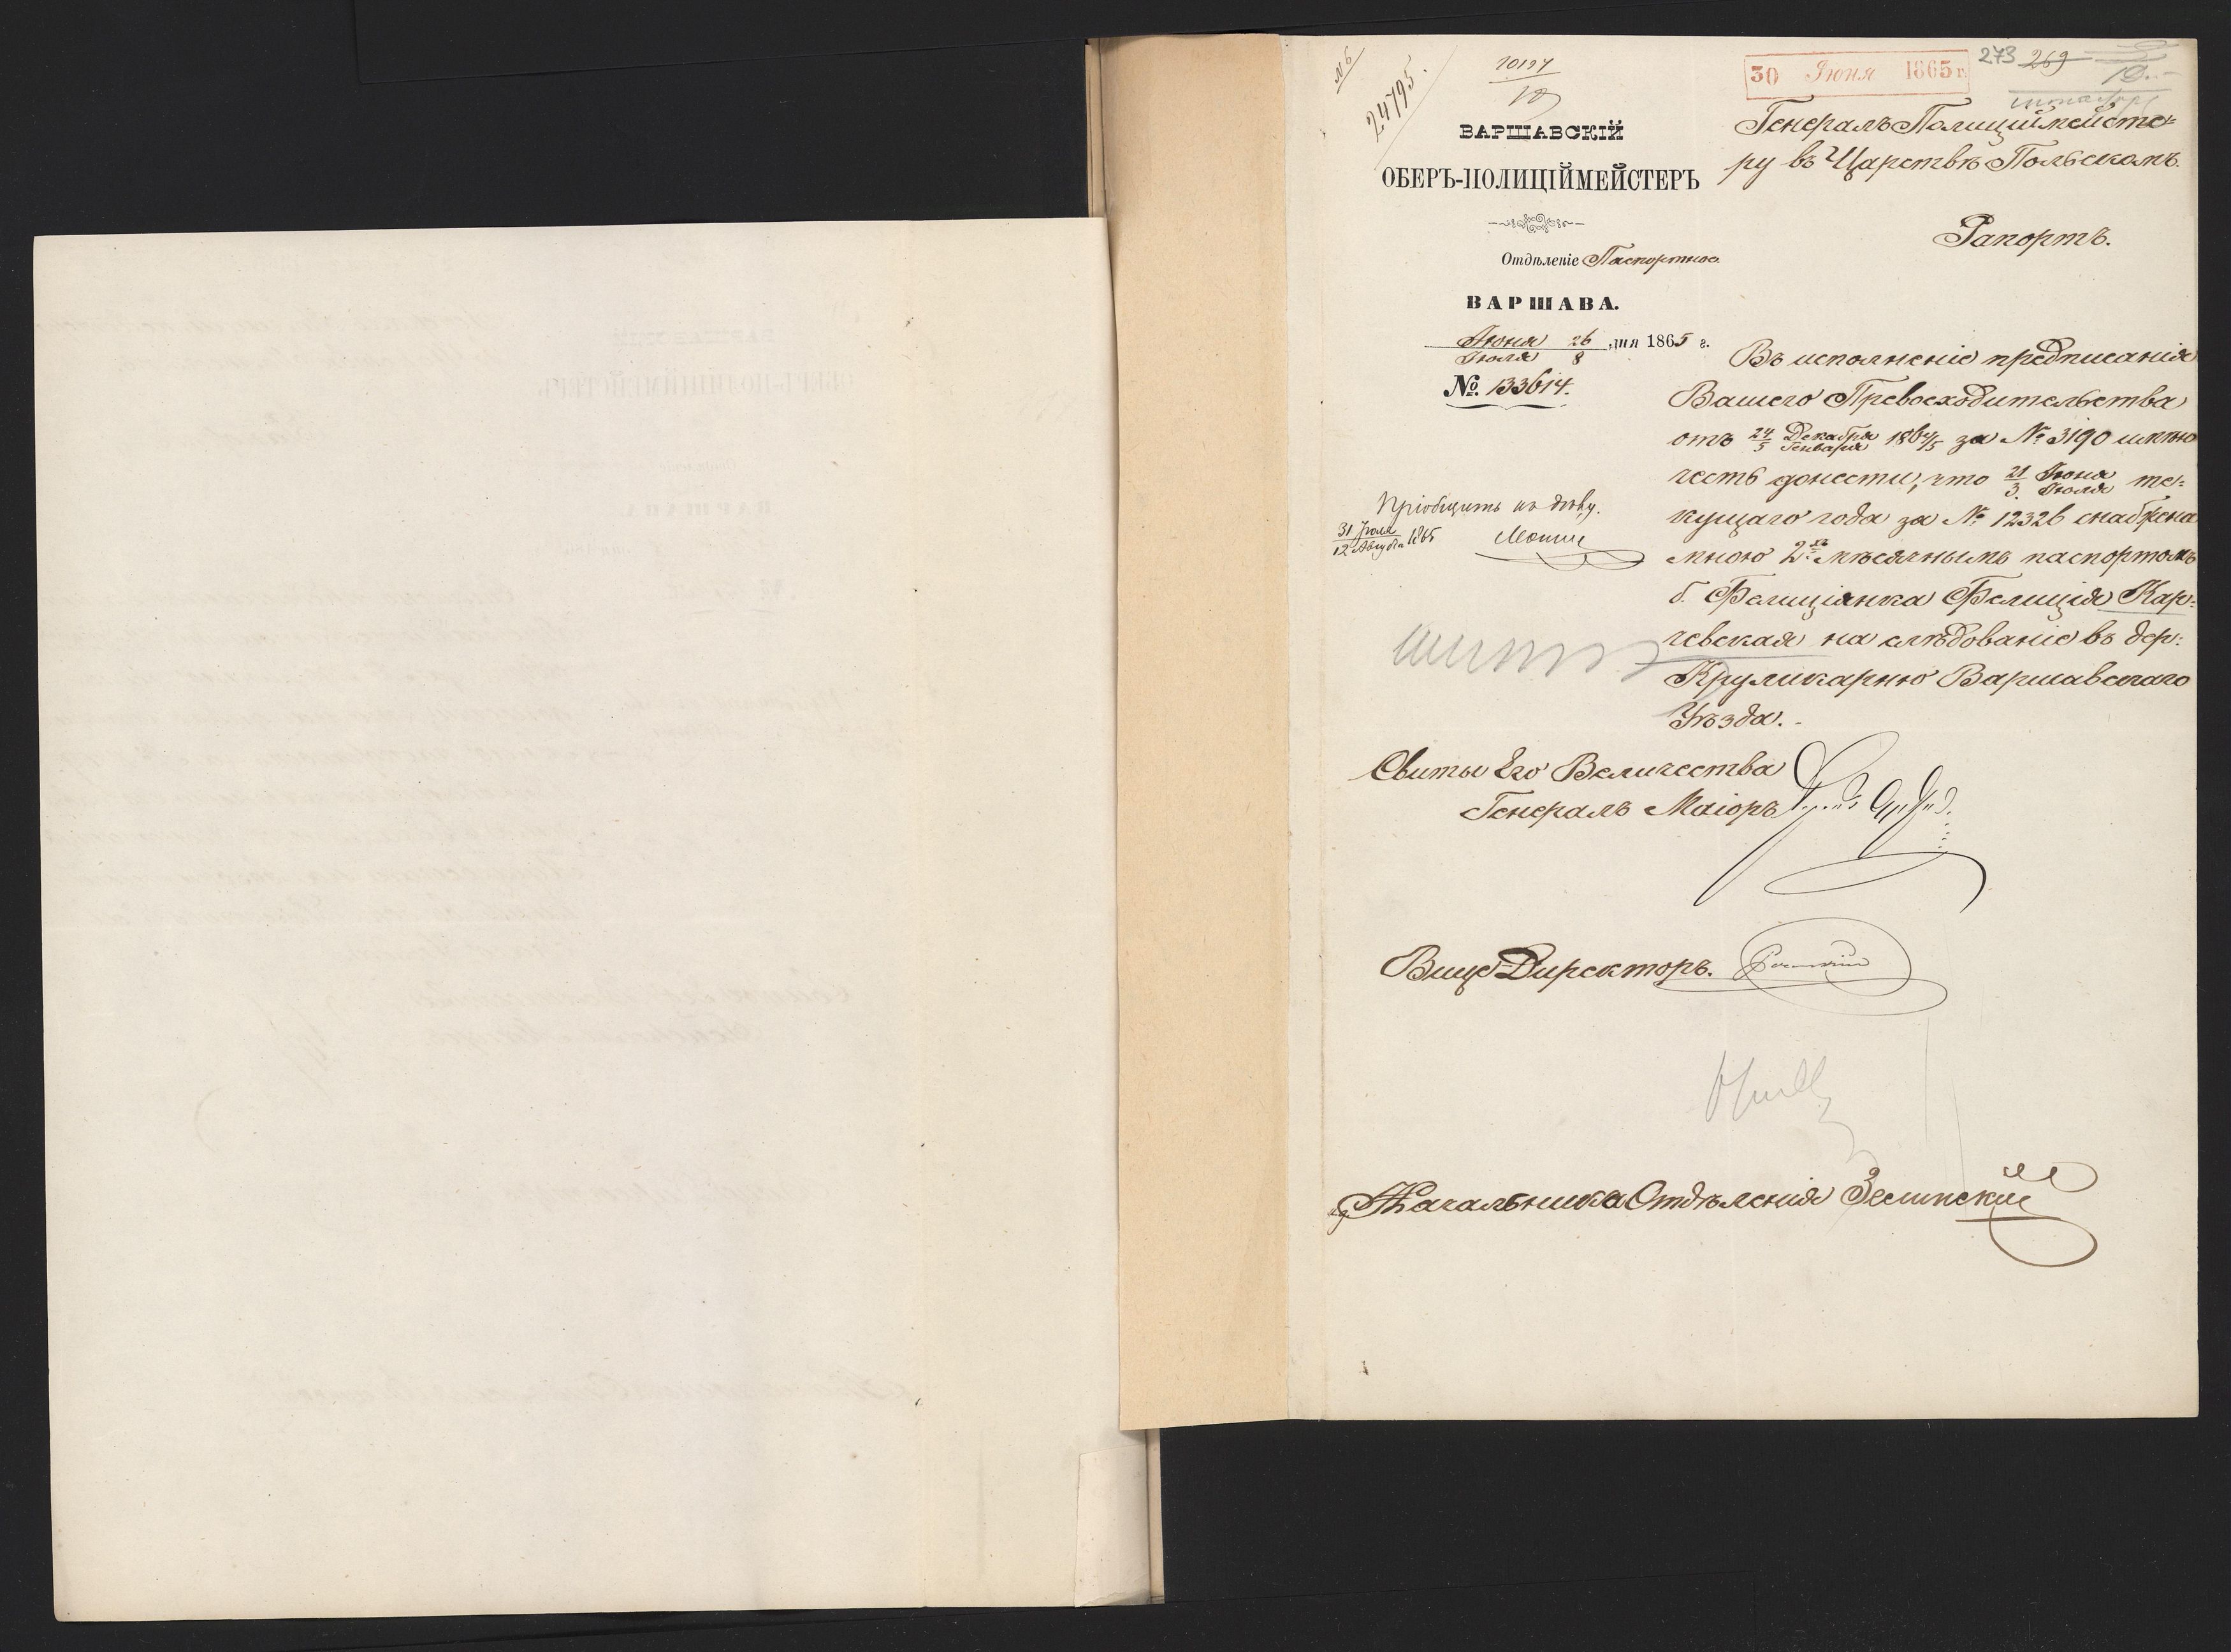 № 6
24795.
10197
10
30 Іюня 1865 г.
273 269
ВАРШАВСКІЙ
ОБЕРЪ-ПОЛИЦІЙМЕЙСТЕРЪ
Отдѣленіе Паспортное.
ВАРШАВА.
Іюня 26 / Іюля 8 дня 1865 г.
№. 133614.
Генералъ Полиціймейсте-
ру въ Царствѣ Польскомъ.
Рапортъ.
Въ исполненіе предписанія
Вашего Превосходительства
отъ 24/5 Декабря/Генваря 1864/5 за № 3190 имѣю
честь донести, что 21/3. Іюня/Іюля те-
кущаго года за № 12326 снабжена
мною 2хъ мѣсячнымъ паспортомъ
б. Фелиціянка Фелиція Кар-
чевская на слѣдованіе въ дер:
Круликарню Варшавскаго
Уѣзда.-
Пріобщить къ дѣлу.
31 Іюля / 12 Августа 1865
Свиты Его Величества
Генералъ Маіоръ
Вице-Директоръ.
Начальника Отдѣленія Зелинскій